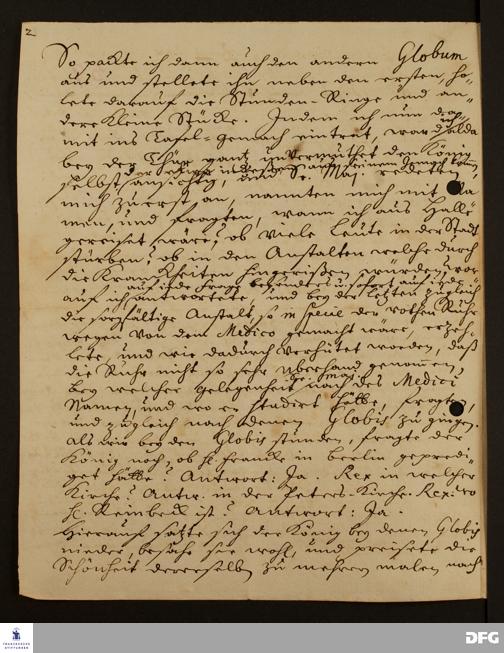 2
So packte ich dann auch den andern Globum
aus und stellete ihn neben den ersten, ho-
lete darauf die Stunden-Ringe und an-
dere kleine Stücke. Indem ich nun da-
mit ins Tafel-gemach eintret, ward ich alda
bey der Thür gantz unvermuthet den König
selbst ansichtig, Se. Maj. redeten
mich zuerst an, nannten mich mit Na-
men, und fragten, wann ich aus Halle
gereiset wäre? ob viele Leute in der Stadt
stürben? ob in den Anstalten welche durch
die Kranckheiten hingerißen würden? wor-
auf ich auf jede Frage antwortete, und bey der letzten zugleich
die sorgfältige Anstalt, so in specie der rothen Ruhr
wegen von dem Medico gemacht wäre, erzeh-
lete, und wie dadurch verhütet worden, daß
die Ruhr nicht so sehr überhand genommen,
bey welcher gelegenheit Se. Maj. nach des Medici
Namen, und wo er studirt hätte, fragten,
und zugleich nach denen Globis zu gingen.
Als wir bey den Globis stunden, fragte der
König noch, ob H. Francke in Berlin gepredi-
get hätte? Antwort: Ja. Rex in welcher
Kirche? Antw. in der Peters-Kirche. Rex: wo
H. Reinbeck ist? Antwort: Ja.
Hierauf satzte sich der König bey denen Globis
nieder, besahe sie wohl, und preisete die
Schönheit derselben zu mehren malen nach
FRANCKESCHE STIFTUNGEN
DFG